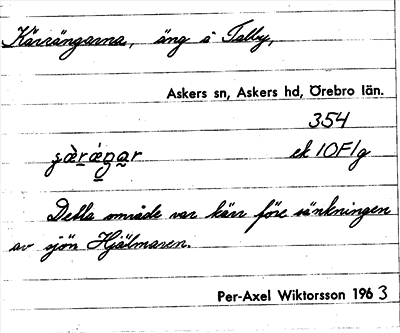 Kärrängarna, äng å Talby,
Askers sn, Askers hd, Örebro län.
354
ek 10F1g
Detta område var kärr före sänkningen
av sjön Hjälmaren.
Per-Axel Wiktorsson 1963